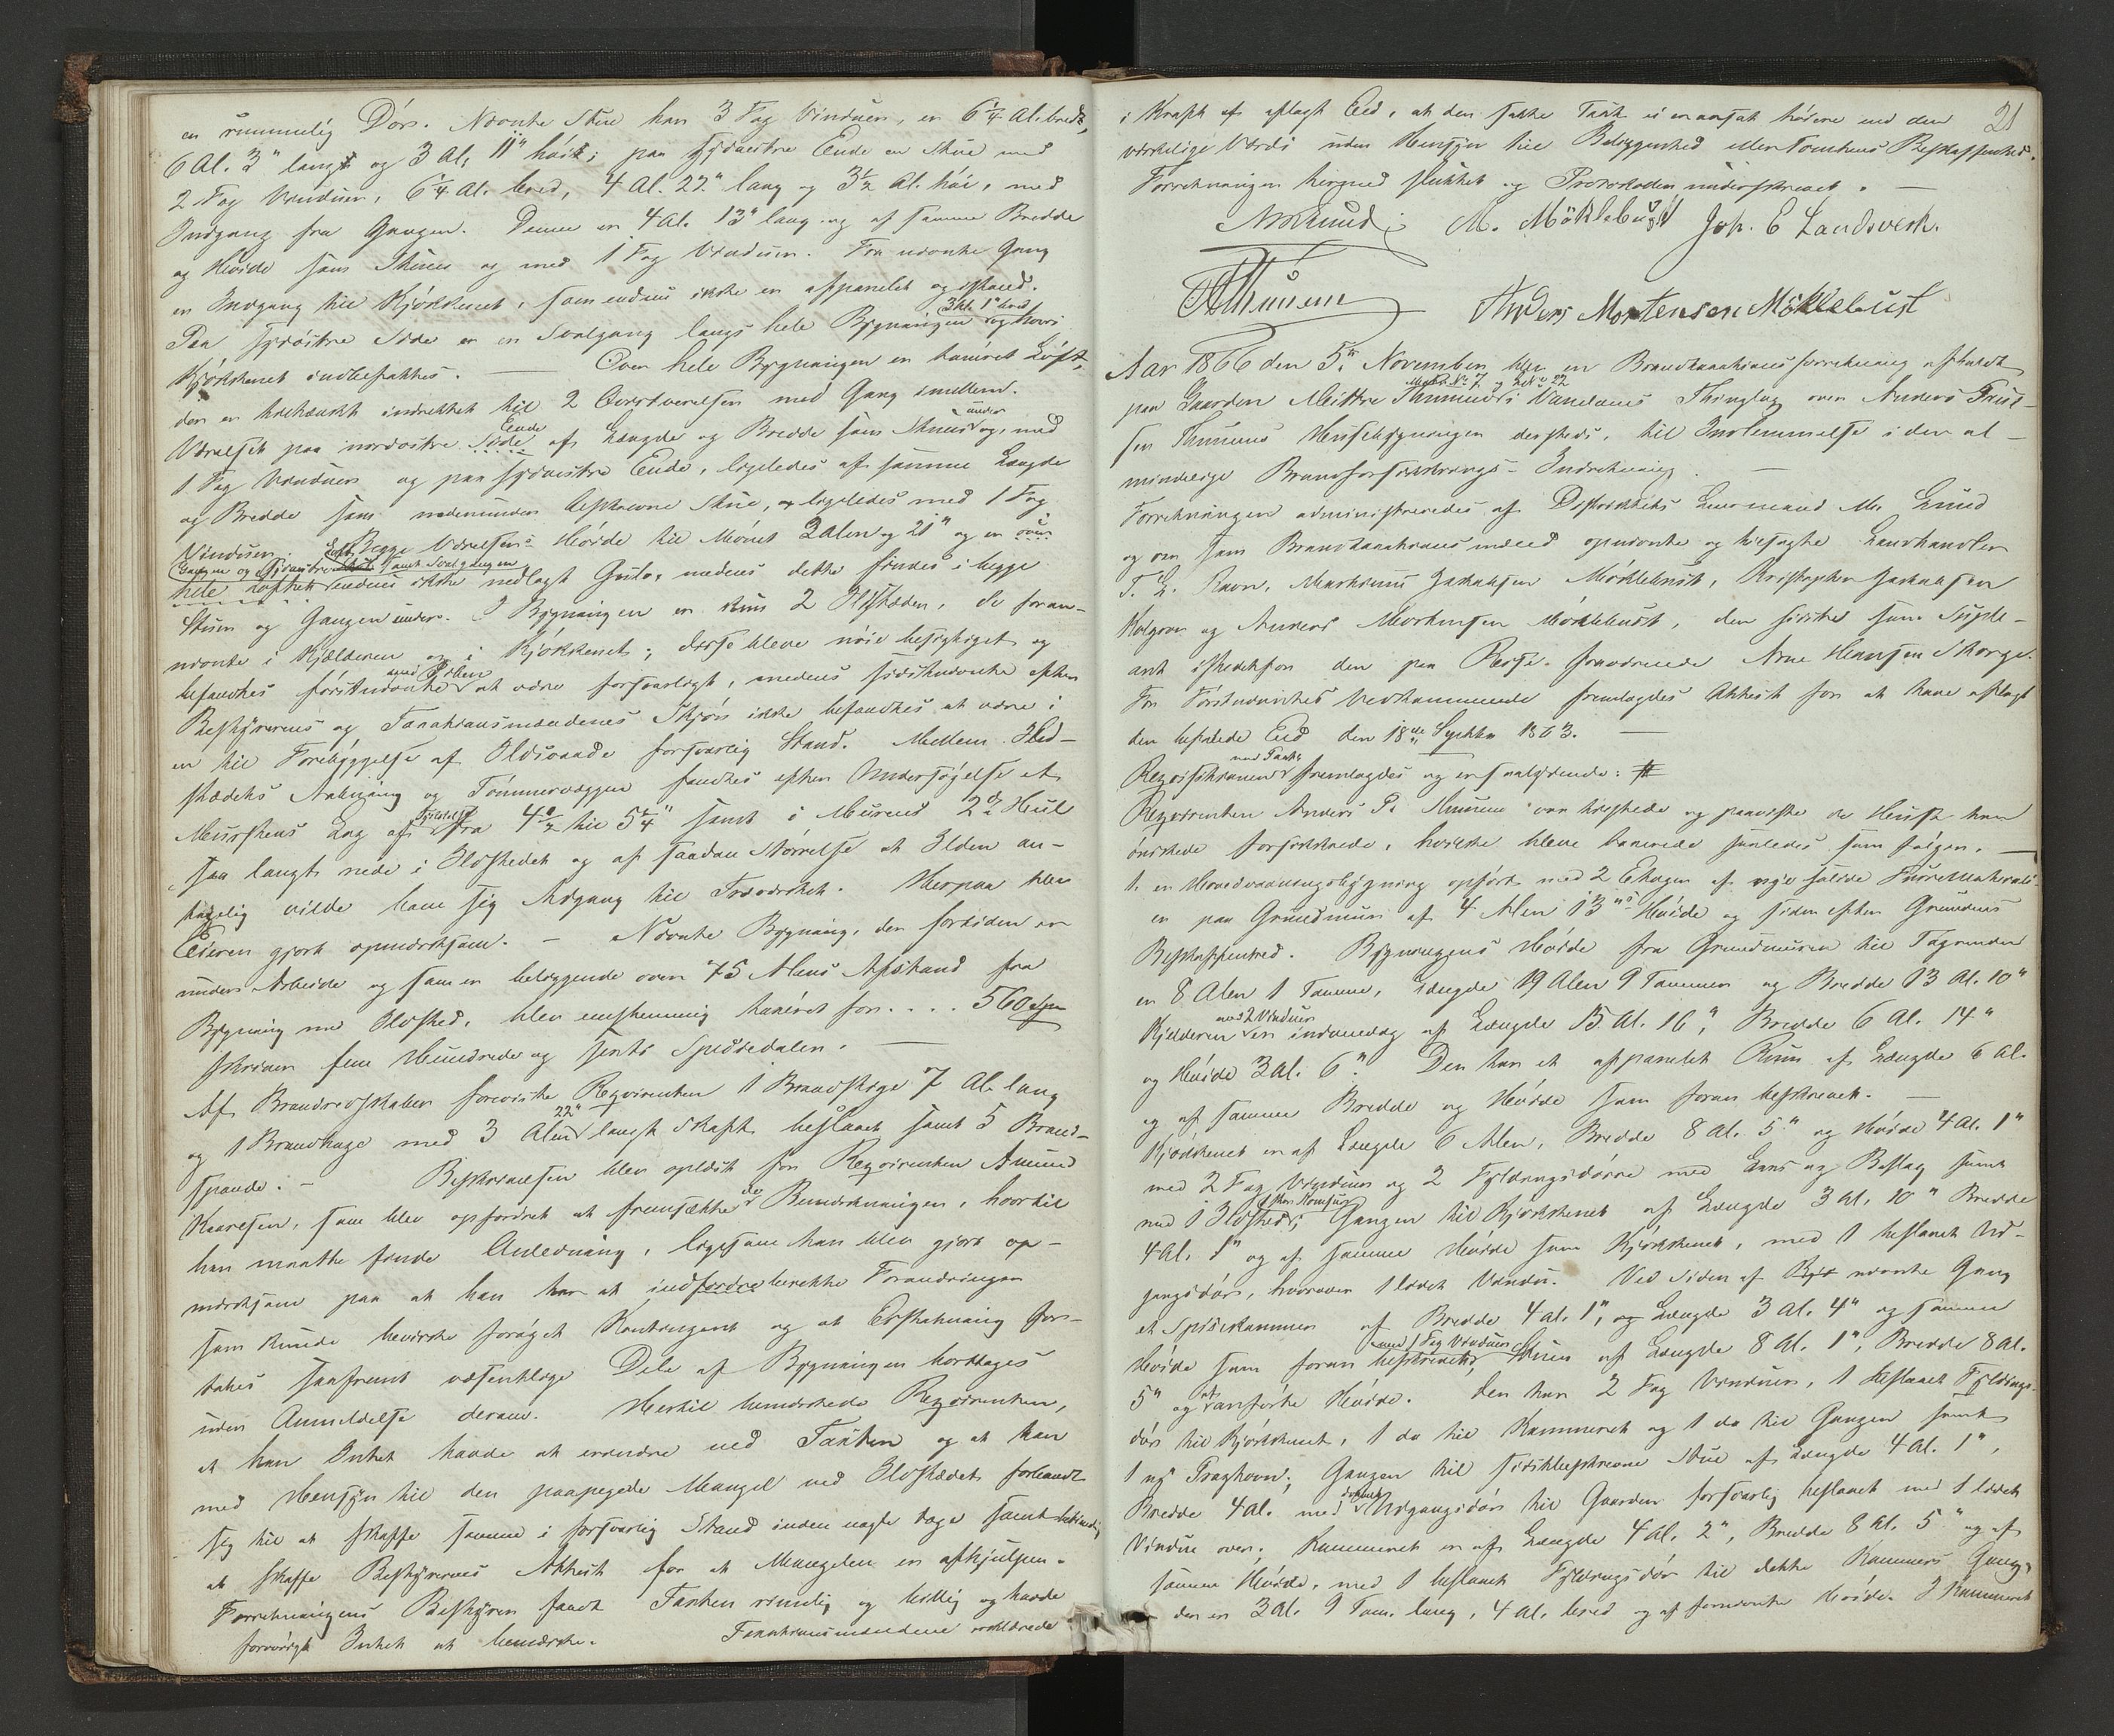 en rummelig Dör. Nævnte Stue har 3 Fag Vinduer, er 6¼ Al. bred,
6 Al. 3" lang og 3 Al. 11" höi; paa sydvestre Ende en Stue med
2 Fag Vinduer, 6¼ Al. bred, 4 Al. 22" lang og 3½ Al. höi, med
Indgang fra Gangen. Denne er 4 Al. 13" lang og af samme Bredde
og Höide som Stuen og med 1 Fag Vinduer. Fra nævnte Gang
er Indgang til Kjökkenet, som endnu ikke er afpanelet og istand.
Paa sydöstre Side er en Svalgang langs hele Bygningen 3 Al. 1" bred og hvori
Kjökkenet indbefattes. — Over hele Bygningen er tømret Loft,
der er indrettet til 2 Overværelser med Gang imellem.
Værelset paa nordöstre Side Ende af Længde og Bredde som Stuen under og med
1 Fag Vinduer og paa sydvestre Ende, ligeledes af samme Længde
og Bredde som nedenunder beskrevne Stue, og ligeledes med 1 Fag
Vinduer. Begge Værelsers Höide til Mönet 3 Alen og 21" og er over
Gangen og Svalgangen
hele Loftet endnu ikke nedlagt Gulv, medens dette findes i begge
Stuer og Gangen under. I Bygningen er kun 2 Ildsteder, de foran-
nævnte i Kjælderen og i Kjökkenet; disse bleve nöie besigtiget og
befandtes förstnævnte med Piben at være forsvarligt, medens sidstnævnte efter
Bestyrerens og Taxationsmændenes Skjön ikke befandtes at være i
en til Forebyggelse af Ildsvaade forsvarlig Stand. Mellem Ild-
stedets og Tömmervæggen fandtes efter Undersögelse et
Murstens Lag af Tykkelse fra 4½ til 5¼" samt i Murens 2de Hul
saa langt nede i Ildstedet og af saadan Störrelse at Ilden an-
tagelig vilde bane sig Adgang til Træværket. Herpaa blev
Eieren gjort opmærksom. — Nævnte Bygning, der fortiden er
under Arbeide og som er beliggende over 75 Alens Afstand fra
Bygning med Ildsted, blev enstemmig taxeret for . . . . 560 Spd
skriver fem Hundrede og sexti Speciedaler. —
Af Brandredskaber foreviste Reqvirenten 1 Brandstige 7 Al. lang
og 1 Brandhage med 3 Alen 22" langt Skaft beslaaet samt 5 Brand-
spande. — Beskrivelsen blev oplæst for Reqvirenten Amund
Kaaresen, som blev opfordret at fremsætte de Bemærkninger, hvortil
han maatte finde Anledning, ligesom han blev gjort op-
mærksom paa at han har at indberette Forandringer
som kunde bevirke forøget Kontingent og at Erstatning for-
tabes saafremt væsentlige Dele af Bygningen borttages
uden Anmeldelse derom. Hertil bemærkede Reqvirenten,
at han Intet havde at erindre ved Taxten og at han
med Hensyn til den paapegede Mangel ved Ildstedet forbandt
sig til at skaffe samme i forsvarlig Stand inden nogle Dage samt
at skaffe Bestyrerens Attest for at Mangelen er afhjulpen.
Forretningens Bestyrer fandt Taxten rimelig og billig og havde
forövrigt Intet at bemærke. Taxationsmændene erklærede
21
i Kraft af aflagt Eed, at den satte Taxt ei er ansat höiere end den
virkelige Værdi uden Hensyn til Beliggenhed eller Tomtens Beskaffenhed.
Forretningen hermed sluttet og Protokollen underskrevet. —
M. Möklebust Joh. E Landsverk.
Anders Mortensen Möklebust
Aar 1866 den 5te November blev en Brandtaxationsforretning afholdt
paa Gaarden Mittre Thunem Matr. No 7 og L. No 22 i Vanelvens Thinglag over Anders
sen Thunems Huusbygninger dersteds, til Indlemmelse i den al-
mindelige Brandforsikkrings-Indretning. —
Forretningen administreredes af Distriktets Lensmand M. Lund
og var som Brandtaxationsmænd opnævnte og tilsagte Landhandler
T. L. Ravn, Markinus Jakobsen Möklebust, Kristopher Jakobsen
Kolgrov og Anders Mortensen Möklebust, den sidste som Supple-
ant istedetfor den paa Reise fraværende Arne Hansen Skorge.
For Förstnævntes Vedkommende fremlagdes Attest for at have aflagt
den befalede Eed den 18de Septbr 1863. —
Reqvisitionen med Paate fremlagdes og er saalydende: #
Reqvirenten Anders P. Thunem var tilstede og paaviste de Huse han
önskede forsikkrede, hvilke bleve taxerede saaledes som fölger. —
1. en Hovedvaaningsbygning opført med 2 Etager af nye solide Furrematerali-
er paa Grundmuur af 4 Alen 13"s Höide og siden efter Grundens
Beskaffenhed. Bygningens Höide fra Grundmuren til Tagrenden
er 8 Alen 1 Tomme, Længde 19 Alen 9 Tommer og Bredde 13 Al. 10"
Kjelderen med 2 Vinduer er indvendig af Længde 15 Al. 16", Bredde 6 Al. 14"
og Höide 3 Al. 6". Den har et afpanelet Rum af Længde 6 Al.
og af samme Bredde og Höide som foran beskrevet. —
Kjökkenet er af Længde 6 Alen, Bredde 8 Al. 5" og Höide 4 Al. 1"
med 2 Fag Vinduer og 2 Fyldingsdörre med Laas og Beslag samt
med 1 Ildsted; Gangen til Kjökkenet af Længde 3 Al. 10" Bredde
4 Al. 1" og af samme Höide som Kjökkenet, med 1 beslaaet Ud-
gangsdör, hvorover 1 lidet Vindu. Ved Siden af nævnte Gang
et Spisekammer af Bredde 4 Al. 1", og Længde 3 Al. 4" og samme
Höide som foran beskrevet, med 1 Fag Vinduer. Stuen af Længde 8 Al. 1", Bredde 8 Al.
5" og anförte Höide. Den har 2 Fag Vinduer, 1 beslaaet Fyldings-
dör til Kjökkenet, 1 do til Kammeret og 1 do til Gangen samt
1 ny Tragkovn; Gangen til sidstbeskrevne Stue af Længde 4 Al. 1",
Bredde 4 Al. med dobbelt Udgangsdör til Gaarden forsvarlig beslaaet med 1 lidet
Vindue over; Kammeret er af Længde 4 Al. 2", Bredde 8 Al. 5" og af
samme Höide, med 1 beslaaet Fyldingsdör til dette Kammers Gang,
der er 3 Al. 9 Tom. lang, 4 Al. bred og af fornævnte Höide. I Kammeret